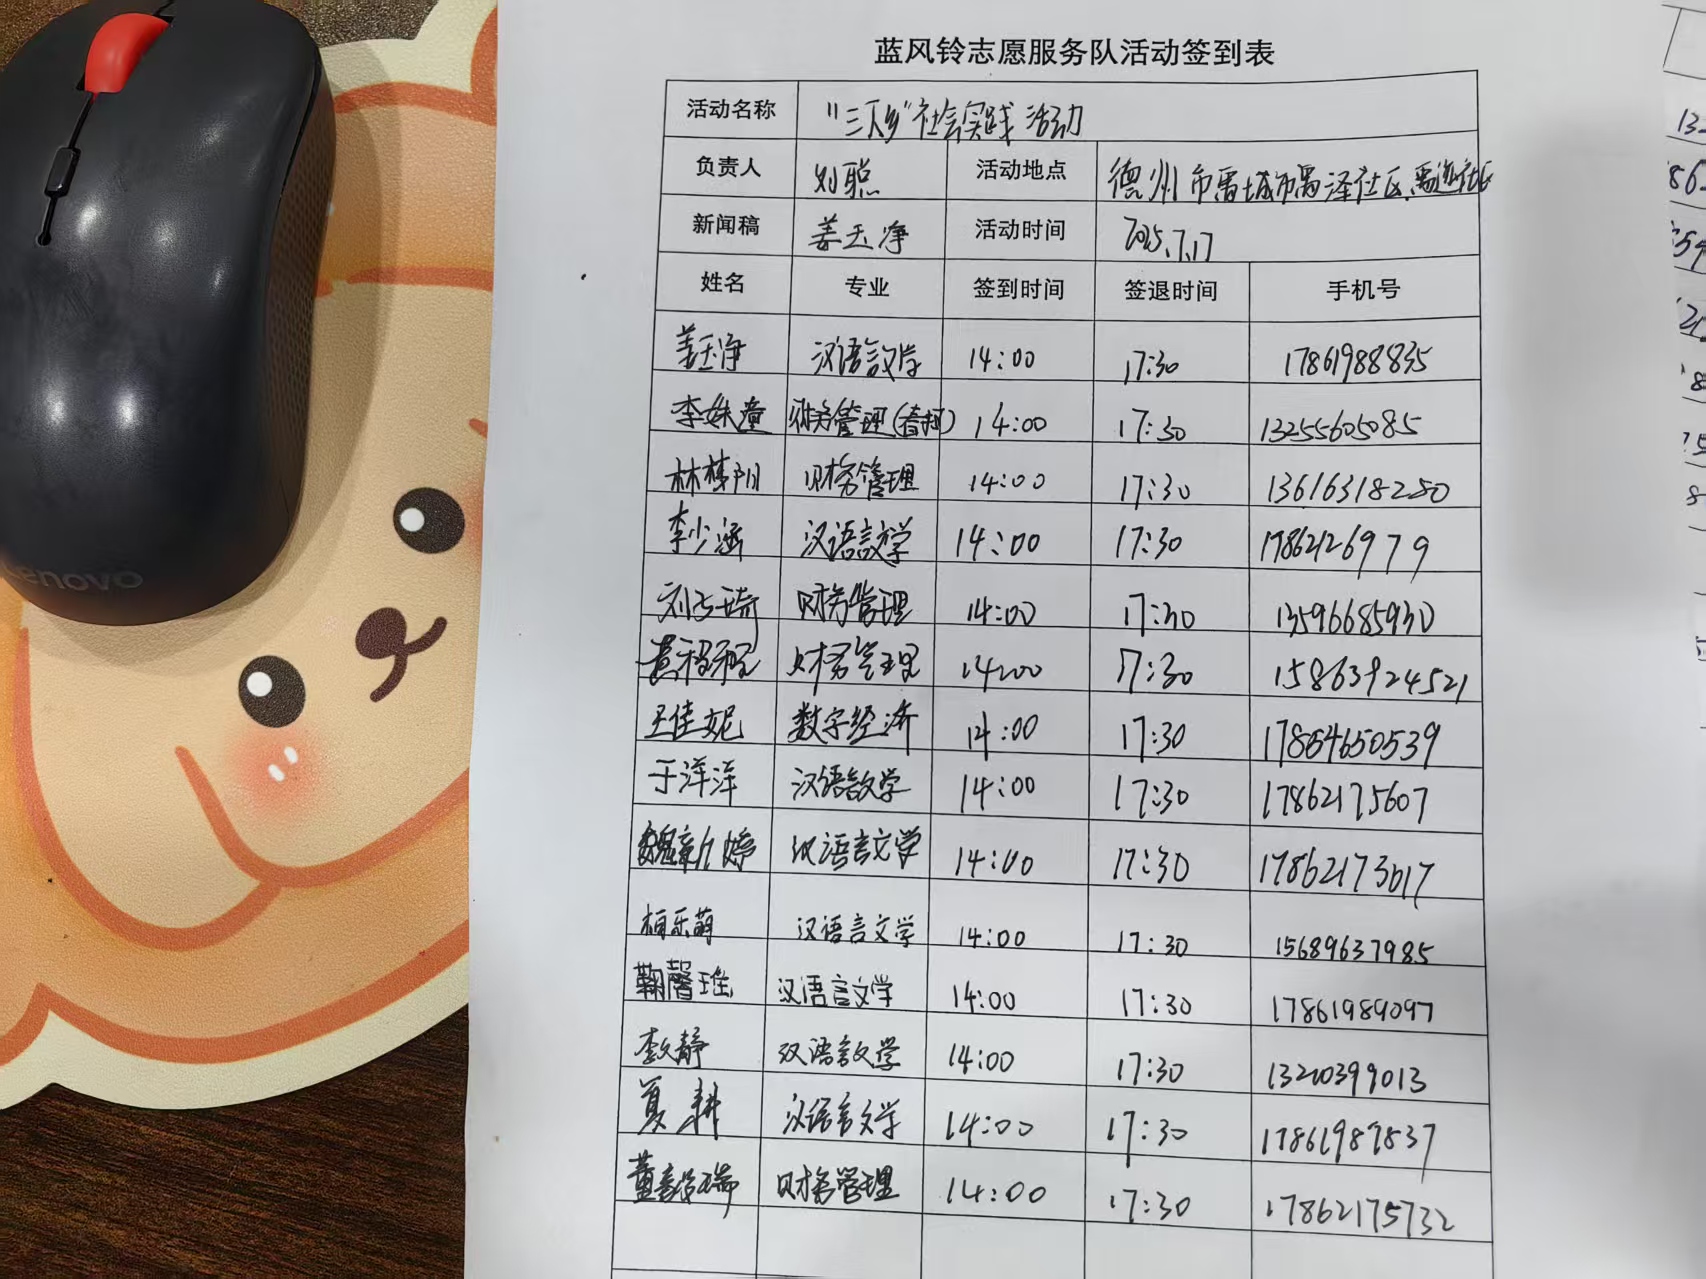 蓝风铃志愿服务队活动签到表
活动名称 "三下乡"社会实践活动
负责人 刘聪 活动地点 德州市禹城市禹泽社区、禹迹社区
新闻稿 姜玉净 活动时间 2025.7.17
姓名 专业 签到时间 签退时间 手机号
姜玉净 汉语言文学 14:00 17:30 17861988835
李姝潼 财务管理(春招) 14:00 17:30 13255605085
林栋阳 财务管理 14:00 17:30 13616318280
李少涵 汉语言文学 14:00 17:30 17862126979
刘子琦 财务管理 14:00 17:30 13596685930
黄程程 财务管理 14:00 17:30 15863924521
王佳妮 数字经济 14:00 17:30 17864650539
于洋洋 汉语言文学 14:00 17:30 17862175607
魏新婷 汉语言文学 14:00 17:30 17862173617
柏乐萌 汉语言文学 14:00 17:30 15689637985
鞠馨瑶 汉语言文学 14:00 17:30 17861989097
李文静 汉语言文学 14:00 17:30 13200399013
夏耕 汉语言文学 14:00 17:30 17861987837
董瑞 财务管理 14:00 17:30 17862175732
lenovo